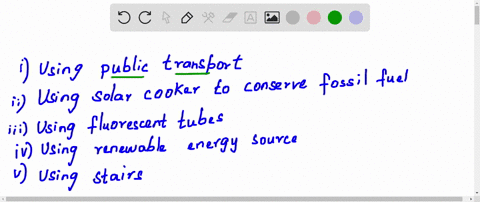 i) Using public transport
ii) Using solar cooker to conserve fossil fuel
iii) Using fluorescent tubes
iv) Using renewable energy source
v) Using stairs